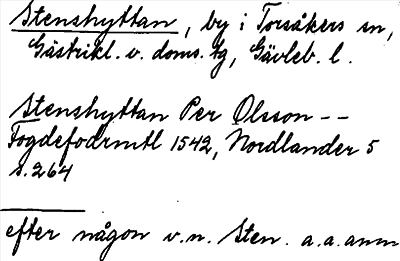 Stenshyttan, by i Torsåkers sn,
Gästrikl. v. doms. tg, Gävleb. l.
Stenshyttan Per Olsson --
Fogdefodrmtl 1542, Nordlander 5
s. 264
efter någon v. n. Sten. a. a. anm